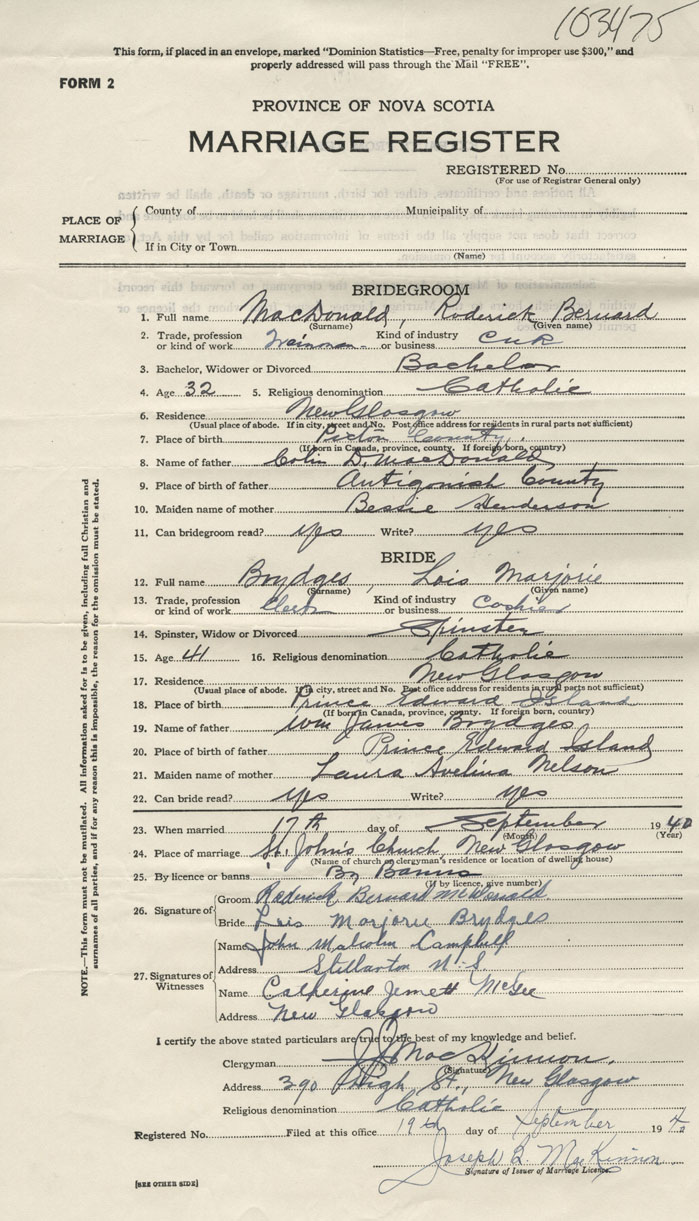 103475
This form, if placed in an envelope, marked "Dominion Statistics—Free, penalty for improper use $300," and
properly addressed will pass through the Mail "FREE".
FORM 2
PROVINCE OF NOVA SCOTIA
MARRIAGE REGISTER
REGISTERED No.
(For use of Registrar General only)
PLACE OF MARRIAGE
County of Municipality of
If in City or Town
(Name)
BRIDEGROOM
1. Full name MacDonald, Roderick Bernard
(Surname) (Given name)
2. Trade, profession or kind of work Trainman Kind of industry or business CNR
3. Bachelor, Widower or Divorced Bachelor
4. Age 32 5. Religious denomination Catholic
6. Residence New Glasgow
(Usual place of abode. If in city, street and No. Post office address for residents in rural parts not sufficient)
7. Place of birth Pictou County.
(If born in Canada, province, county. If foreign born, country)
8. Name of father Colin D. MacDonald
9. Place of birth of father Antigonish County
10. Maiden name of mother Bessie Henderson
11. Can bridegroom read? yes Write? yes
BRIDE
12. Full name Brydges, Lois Marjorie
(Surname) (Given name)
13. Trade, profession or kind of work Clerk Kind of industry or business
14. Spinster, Widow or Divorced Spinster
15. Age 41 16. Religious denomination Catholic
17. Residence New Glasgow
(Usual place of abode. If in city, street and No. Post office address for residents in rural parts not sufficient)
18. Place of birth Prince Edward Island
(If born in Canada, province, county. If foreign born, country)
19. Name of father Wm James Brydges
20. Place of birth of father Prince Edward Island
21. Maiden name of mother Laura Avelina Nelson
22. Can bride read? yes Write? yes
23. When married 17th day of September 1940
(Month) (Year)
24. Place of marriage St. John's Church, New Glasgow
(Name of church or clergyman's residence or location of dwelling house)
25. By licence or banns By Banns
(If by licence, give number)
26. Signature of
Groom Roderick Bernard McDonald
Bride Lois Marjorie Brydges
27. Signatures of Witnesses
Name John Malcolm Campbell
Address Stellarton N.S
Name Catherine McGee
Address New Glasgow
I certify the above stated particulars are true to the best of my knowledge and belief.
Clergyman J. J. MacKinnon.
(Signature)
Address 390 High St., New Glasgow
Religious denomination Catholic
Registered No. Filed at this office 19th day of September 1940
Joseph B. MacKinnon
Signature of Issuer of Marriage Licence.
[SEE OTHER SIDE]
NOTE.—This form must not be mutilated. All information asked for is to be given, including full Christian and
surnames of all parties, and if for any reason this is impossible, the reason for the omission must be stated.